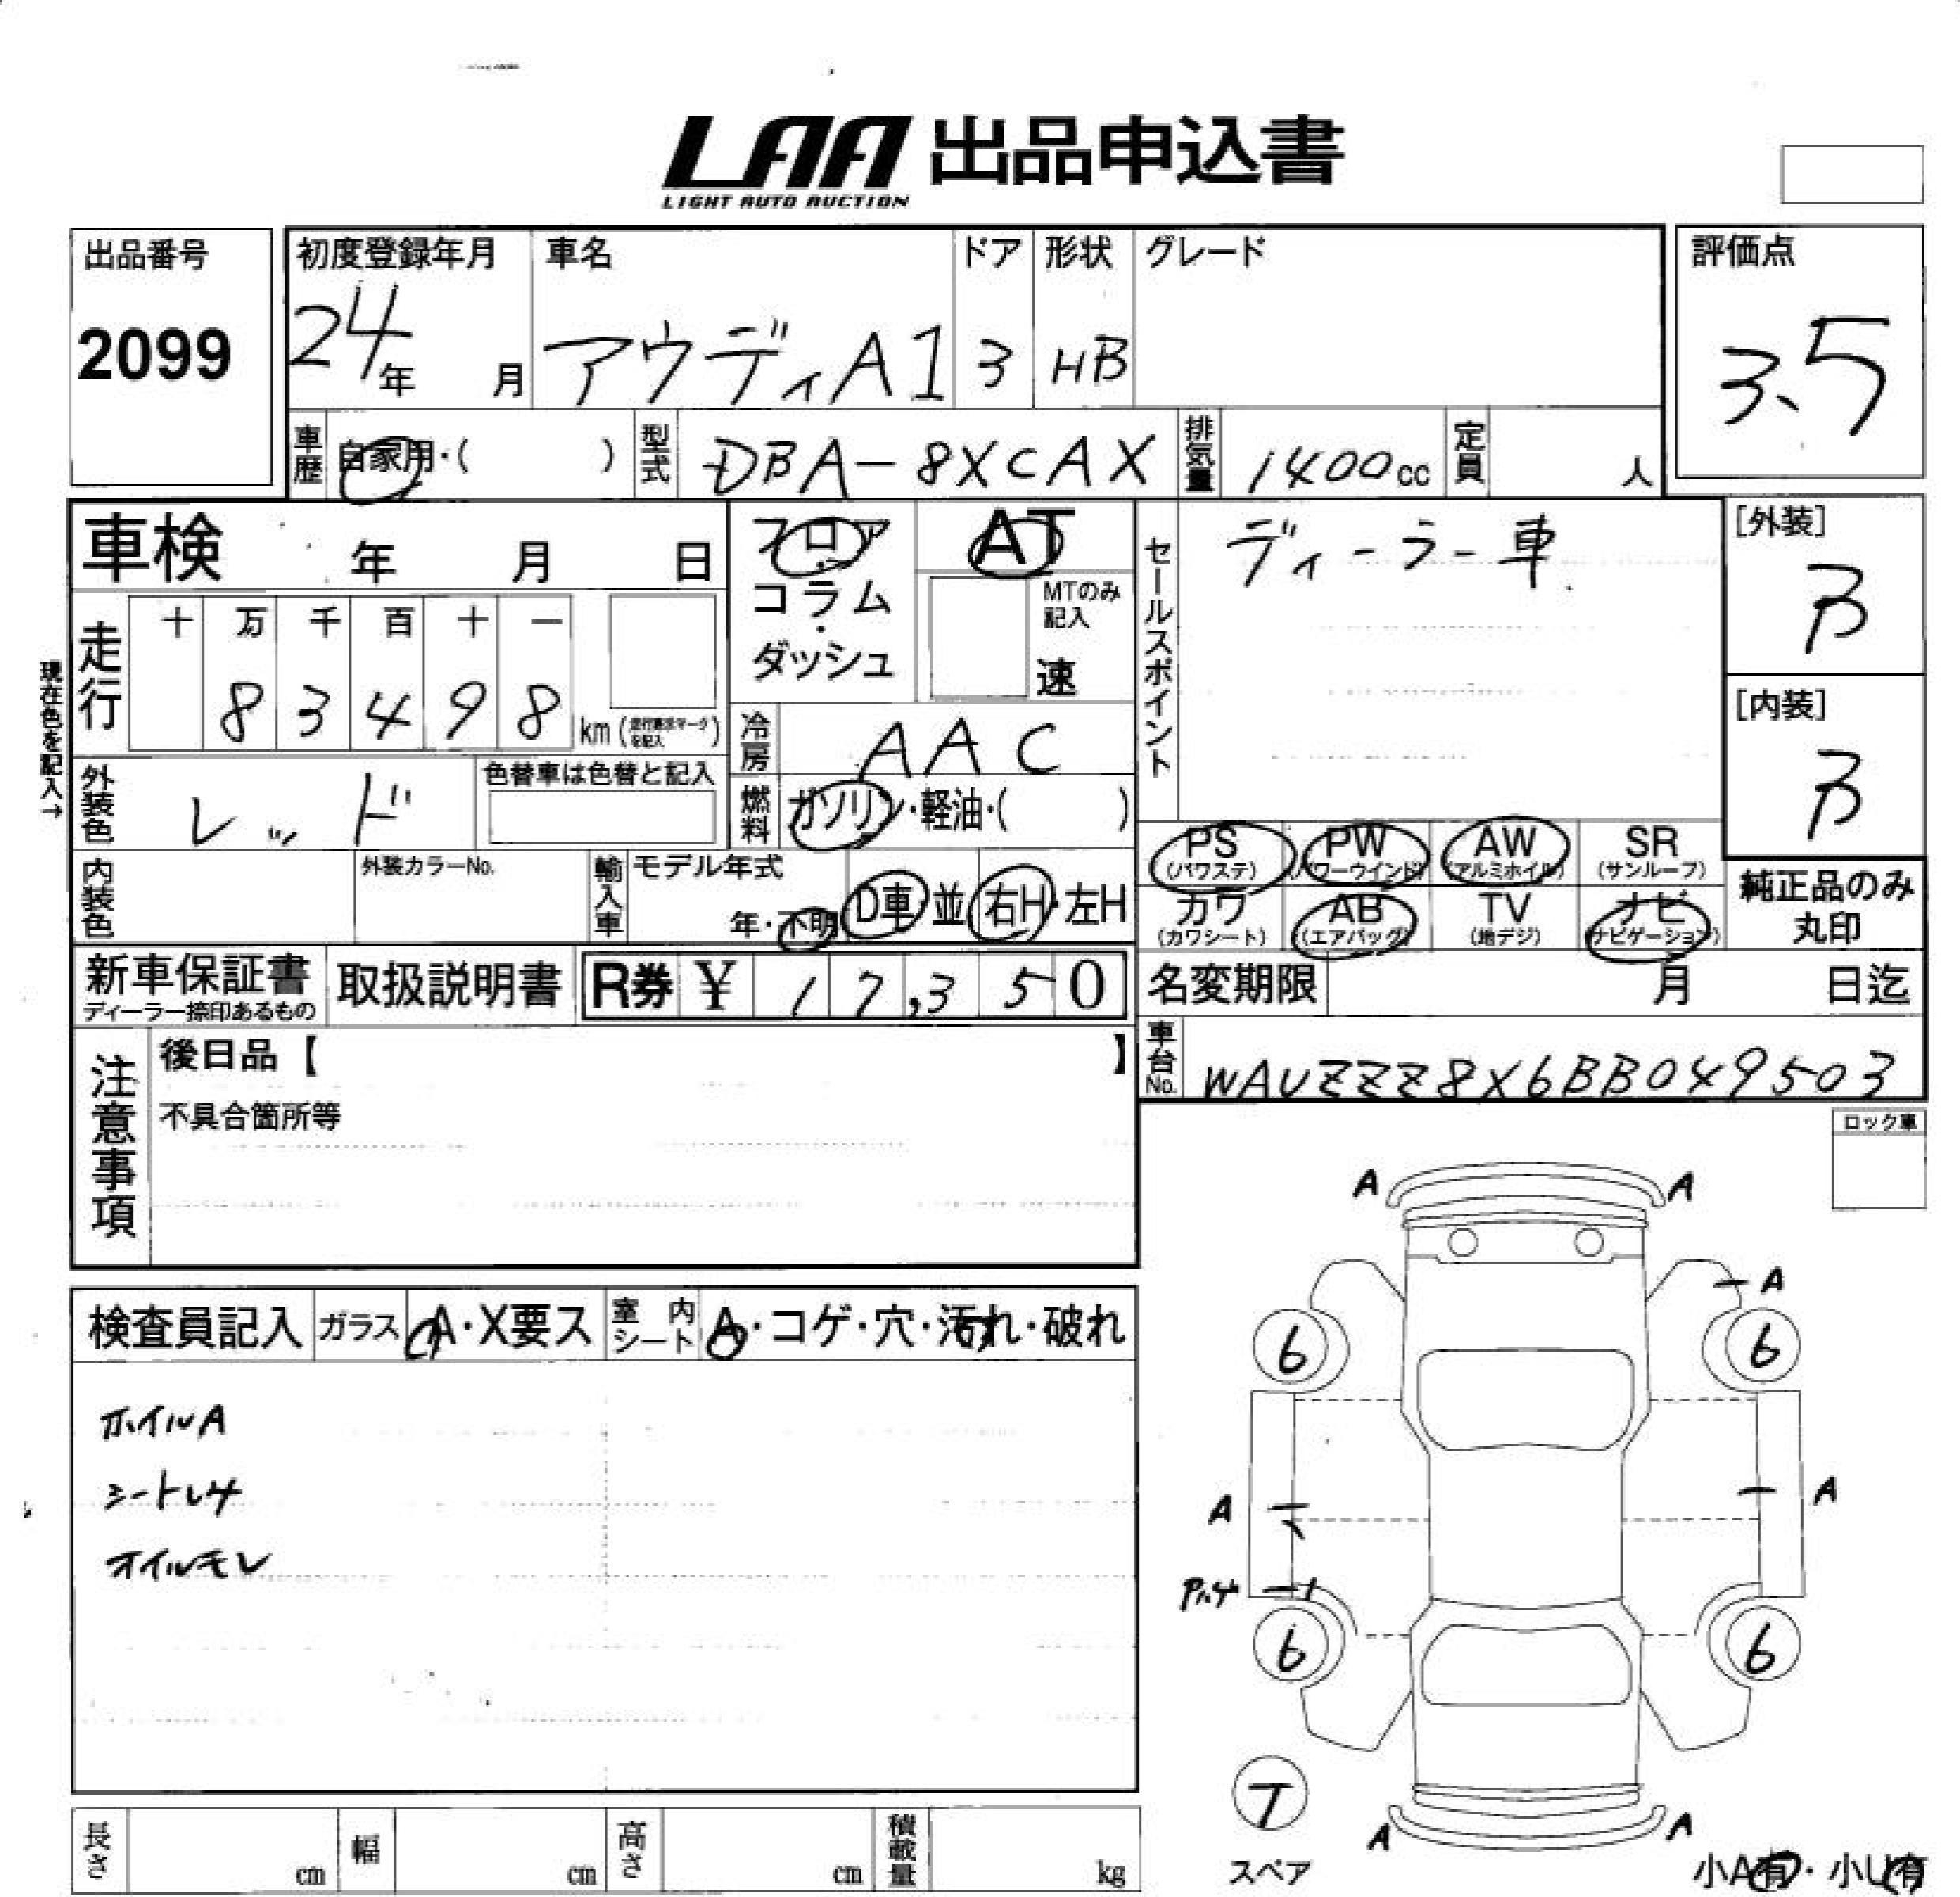 LAA 出品申込書
LIGHT AUTO AUCTION
出品番号
2099
初度登録年月
24年 月
車名
アウディA1
ドア
3
形状
HB
グレード
評価点
3.5
車歴 自家用・( )
型式 DBA-8XCAX
排気量 1400cc
定員 人
車検 年 月 日
フロア
コラム
・
ダッシュ
AT
MTのみ
記入
速
セールスポイント
ディーラー車
[外装]
B
[内装]
B
現在色を記入→
走行
十 万 千 百 十 一
8 3 4 9 8 km
を記入
冷房 AAC
燃料 ガソリン・軽油・( )
外装色 レッド
色替車は色替と記入
内装色
外装カラーNo.
輸入車
モデル年式
年・不明
D車 並
右H・左H
PS
(パワステ)
PW
(パワーウインド)
AW
(アルミホイル)
SR
(サンルーフ)
カワ
(カワシート)
AB
(エアバッグ)
TV
(地デジ)
ナビ
(ナビゲーション)
純正品のみ
丸印
新車保証書
ディーラー捺印あるもの
取扱説明書
R券 ¥ 17,350
名変期限 月 日迄
車台No. WAUZZZ8X6BB049503
注意事項
後日品【 】
不具合箇所等
ロック車
A A
A
6 6
A A
6 6
検査員記入
ガラス A・X要ス
室内シート A・コゲ・穴・汚れ・破れ
ホイルA
シートレサ
オイルモレ
T
スペア
A A
小A有・小U有
長さ cm
幅 cm
高さ cm
積載量 kg